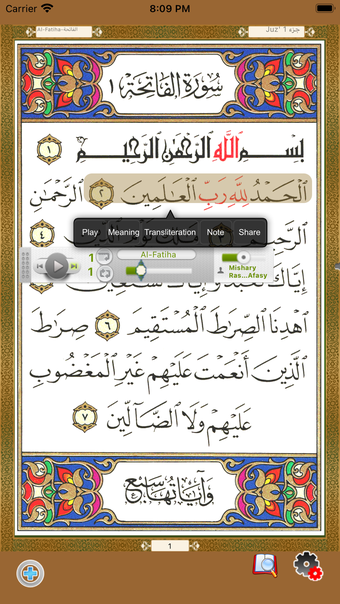 Carrier 8:09 PM
Al-Fatiha-الفاتحة Juz' 1 جزء
سُورَةُ الْفَاتِحَةِ ١
بِسْمِ ٱللَّهِ ٱلرَّحْمَٰنِ ٱلرَّحِيمِ ١
ٱلْحَمْدُ لِلَّهِ رَبِّ ٱلْعَٰلَمِينَ ٢ ٱلرَّحْمَٰنِ
Play Meaning Transliteration Note Share
ٱلرَّحِيمِ ٤
1 Al-Fatiha
1 Mishary Ras...Afasy
إِيَّاكَ
ٱهْدِنَا ٱلصِّرَٰطَ ٱلْمُسْتَقِيمَ ٦ صِرَٰطَ
ٱلَّذِينَ أَنْعَمْتَ عَلَيْهِمْ غَيْرِ ٱلْمَغْضُوبِ
عَلَيْهِمْ وَلَا ٱلضَّآلِّينَ ٧
وَآيَاتُهَا سَبْعٌ
1